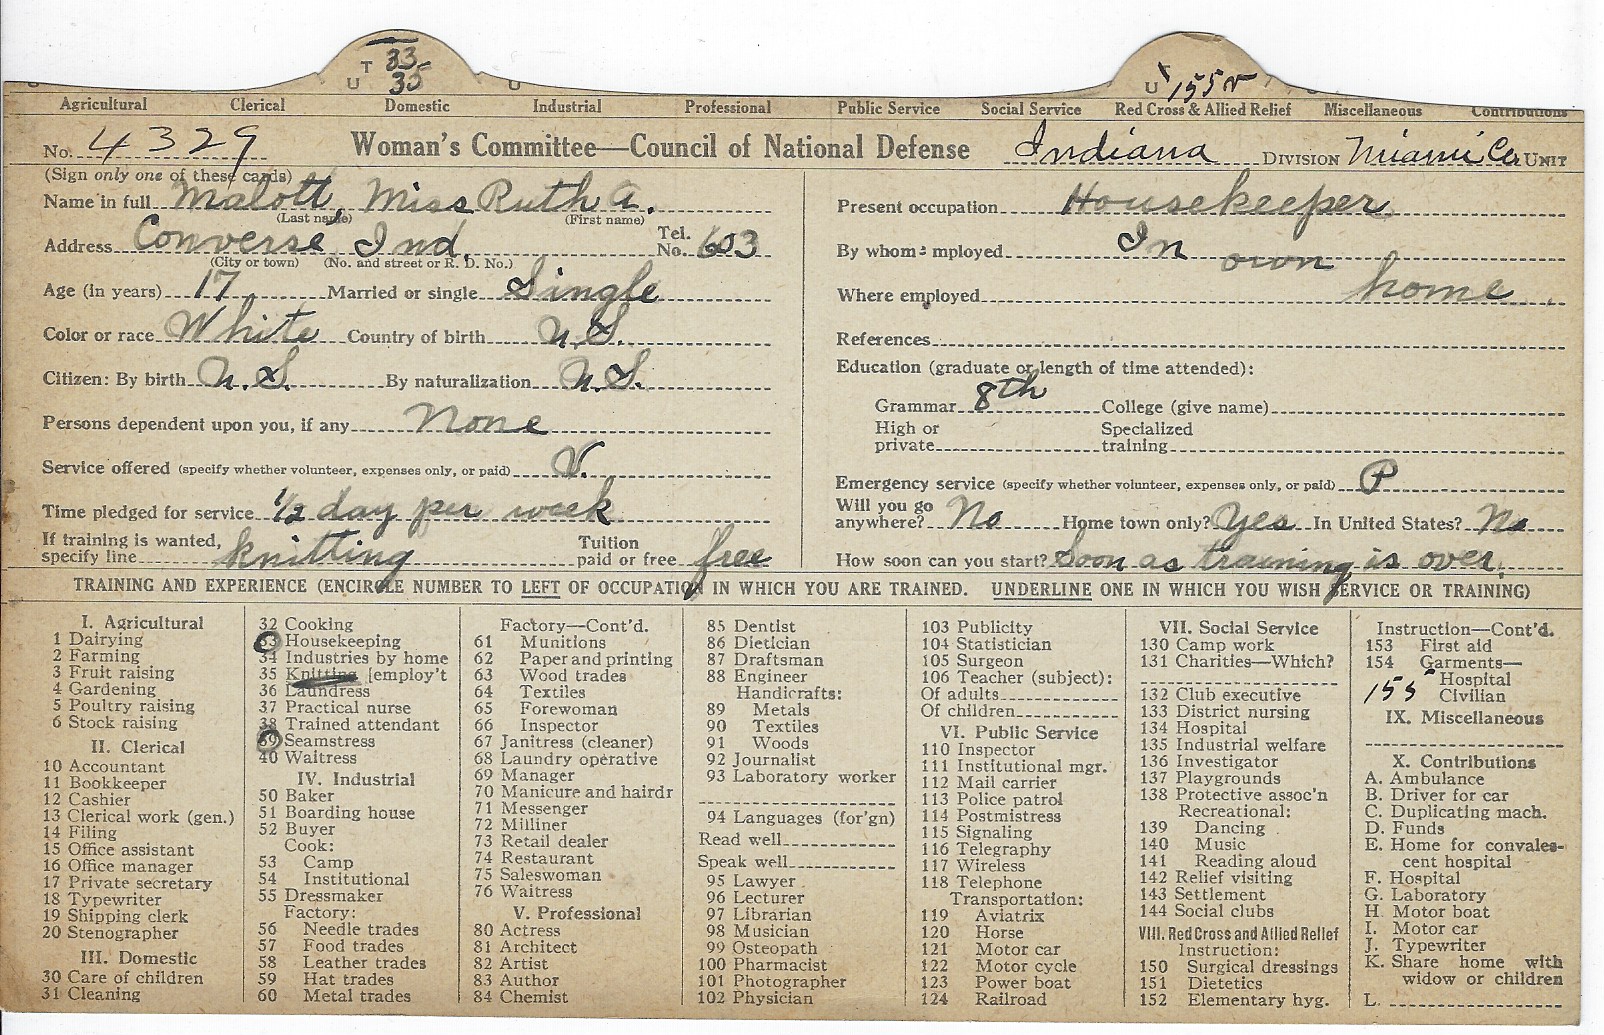 T 33
U 35
U 155 v
Agricultural Clerical Domestic Industrial Professional Public Service Social Service Red Cross & Allied Relief Miscellaneous Contributions
No. 4329 Woman's Committee—Council of National Defense Indiana DIVISION Miami Co. UNIT
(Sign only one of these cards)
Name in full Malott, Miss Ruth A.
(Last name) (First name)
Address Converse, Ind. Tel. No. 603
(City or town) (No. and street or R. D. No.)
Age (in years) 17 Married or single Single
Color or race White Country of birth U.S.
Citizen: By birth U.S. By naturalization U.S.
Persons dependent upon you, if any None
Service offered (specify whether volunteer, expenses only, or paid) V.
Time pledged for service 1/2 day per week
If training is wanted, specify line knitting Tuition paid or free free
Present occupation Housekeeper
By whom employed In own
Where employed home.
References
Education (graduate or length of time attended):
Grammar 8th College (give name)
High or private Specialized training
Emergency service (specify whether volunteer, expenses only, or paid) P
Will you go anywhere? No Home town only? Yes In United States? No
How soon can you start? Soon as training is over.
TRAINING AND EXPERIENCE (ENCIRCLE NUMBER TO LEFT OF OCCUPATION IN WHICH YOU ARE TRAINED. UNDERLINE ONE IN WHICH YOU WISH SERVICE OR TRAINING)
I. Agricultural
1 Dairying
2 Farming
3 Fruit raising
4 Gardening
5 Poultry raising
6 Stock raising
II. Clerical
10 Accountant
11 Bookkeeper
12 Cashier
13 Clerical work (gen.)
14 Filing
15 Office assistant
16 Office manager
17 Private secretary
18 Typewriter
19 Shipping clerk
20 Stenographer
III. Domestic
30 Care of children
31 Cleaning
32 Cooking
33 Housekeeping
34 Industries by home
35 Knitting [employ't
36 Laundress
37 Practical nurse
38 Trained attendant
39 Seamstress
40 Waitress
IV. Industrial
50 Baker
51 Boarding house
52 Buyer
Cook:
53 Camp
54 Institutional
55 Dressmaker
Factory:
56 Needle trades
57 Food trades
58 Leather trades
59 Hat trades
60 Metal trades
Factory—Cont'd.
61 Munitions
62 Paper and printing
63 Wood trades
64 Textiles
65 Forewoman
66 Inspector
67 Janitress (cleaner)
68 Laundry operative
69 Manager
70 Manicure and hairdr
71 Messenger
72 Milliner
73 Retail dealer
74 Restaurant
75 Saleswoman
76 Waitress
V. Professional
80 Actress
81 Architect
82 Artist
83 Author
84 Chemist
85 Dentist
86 Dietician
87 Draftsman
88 Engineer
Handicrafts:
89 Metals
90 Textiles
91 Woods
92 Journalist
93 Laboratory worker
94 Languages (for'gn)
Read well
Speak well
95 Lawyer
96 Lecturer
97 Librarian
98 Musician
99 Osteopath
100 Pharmacist
101 Photographer
102 Physician
103 Publicity
104 Statistician
105 Surgeon
106 Teacher (subject):
Of adults
Of children
VI. Public Service
110 Inspector
111 Institutional mgr.
112 Mail carrier
113 Police patrol
114 Postmistress
115 Signaling
116 Telegraphy
117 Wireless
118 Telephone
Transportation:
119 Aviatrix
120 Horse
121 Motor car
122 Motor cycle
123 Power boat
124 Railroad
VII. Social Service
130 Camp work
131 Charities—Which?
132 Club executive
133 District nursing
134 Hospital
135 Industrial welfare
136 Investigator
137 Playgrounds
138 Protective assoc'n
Recreational:
139 Dancing
140 Music
141 Reading aloud
142 Relief visiting
143 Settlement
144 Social clubs
VIII. Red Cross and Allied Relief
Instruction:
150 Surgical dressings
151 Dietetics
152 Elementary hyg.
Instruction—Cont'd.
153 First aid
154 Garments—
Hospital
155 Civilian
IX. Miscellaneous
X. Contributions
A. Ambulance
B. Driver for car
C. Duplicating mach.
D. Funds
E. Home for convales-
cent hospital
F. Hospital
G. Laboratory
H. Motor boat
I. Motor car
J. Typewriter
K. Share home with
widow or children
L.